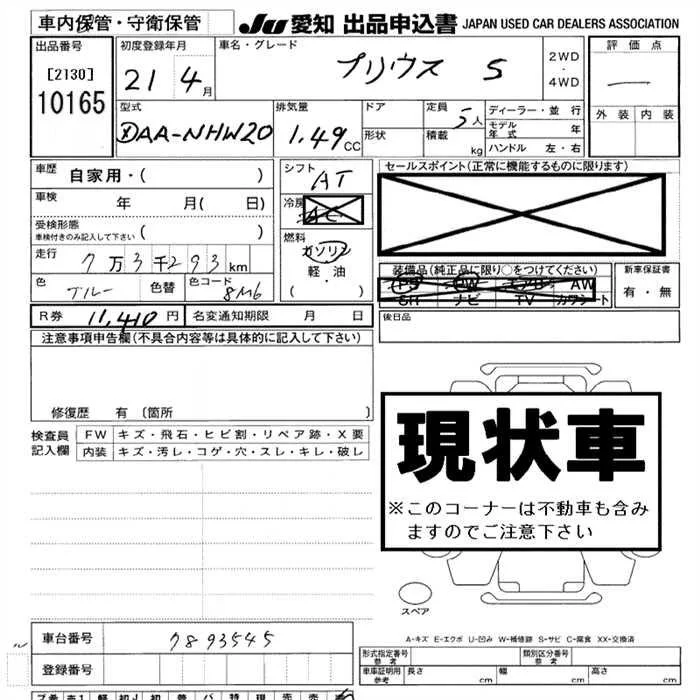 車内保管・守衛保管
JU 愛知 出品申込書 JAPAN USED CAR DEALERS ASSOCIATION
出品番号 初度登録年月 車名・グレード 評価点
[2130] 21年 4月 プリウス S 2WD・4WD
10165
型式 排気量 ドア 定員 ディーラー・並行 外装 内装
DAA-NHW20 1.49CC 形状 5人 モデル年式 年
積載 kg ハンドル 左・右
車歴 自家用・( ) シフト AT セールスポイント(正常に機能するものに限ります)
車検 年 月( 日) 冷房 AC
受検形態
車検付きのみ記入して下さい ( )
燃料
走行 7万3千293km ガソリン 装備品(純正品に限り○をつけてください) 新車保証書
軽・油 PS PW エアB AW 有・無
色 ブルー 色替 色コード 8M6 ・( ) SR ナビ TV カワシート
R券 11,410円 名変通知期限 月 日 後日品
注意事項申告欄(不具合内容等は具体的に記入して下さい)
修復歴 有〔箇所 〕
検査員記入欄 FW キズ・飛石・ヒビ割・リペア跡・X要
内装 キズ・汚レ・コゲ・穴・スレ・キレ・破レ
現状車
※このコーナーは不動車も含み
ますのでご注意下さい
スペア
A-キズ E-エクボ U-凹み W-補修跡 S-サビ C-腐食 XX-交換済
車台番号 7893545
登録番号
形式指定番号 参考 類別区分番号 参考
車庫証明用 参考 長さ cm 幅 cm 高さ cm